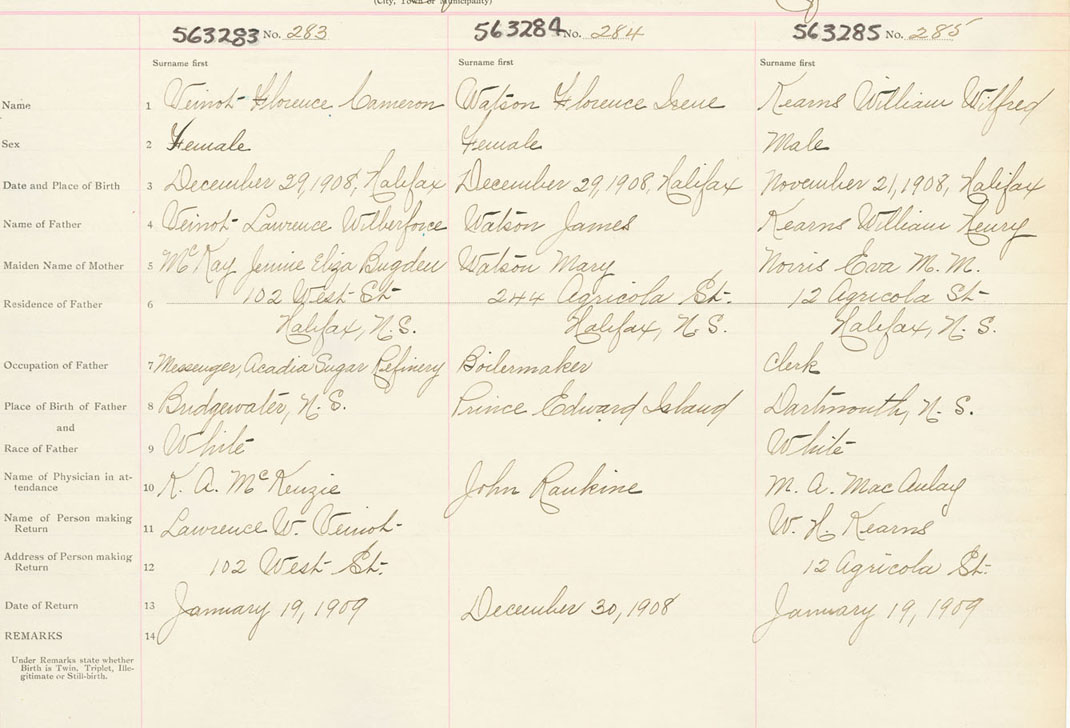 (City, Town or Municipality)
563283 No. 283 563284 No. 284 563285 No. 285
Surname first Surname first Surname first
Name 1 Veinot Florence Cameron Watson Florence Irene Kearns William Wilfred
Sex 2 Female Female Male
Date and Place of Birth 3 December 29, 1908, Halifax December 29, 1908, Halifax November 21, 1908, Halifax
Name of Father 4 Veinot Lawrence Wilberforce Watson James Kearns William Henry
Maiden Name of Mother 5 McKay Jennie Eliza Bugden Watson Mary Norris Eva M. M.
Residence of Father 6 102 West St. 244 Agricola St. 12 Agricola St
Halifax, N.S. Halifax, N.S. Halifax, N.S.
Occupation of Father 7 Messenger, Acadia Sugar Refinery Boilermaker Clerk
Place of Birth of Father 8 Bridgewater, N.S. Prince Edward Island Dartmouth, N.S.
and
Race of Father 9 White White
Name of Physician in at-
tendance 10 K. A. McKenzie John Rankine M. A. MacAulay
Name of Person making
Return 11 Lawrence W. Veinot W. H. Kearns
Address of Person making
Return 12 102 West St. 12 Agricola St.
Date of Return 13 January 19, 1909 December 30, 1908 January 19, 1909
REMARKS 14
Under Remarks state whether
Birth is Twin, Triplet, Ille-
gitimate or Still-birth.